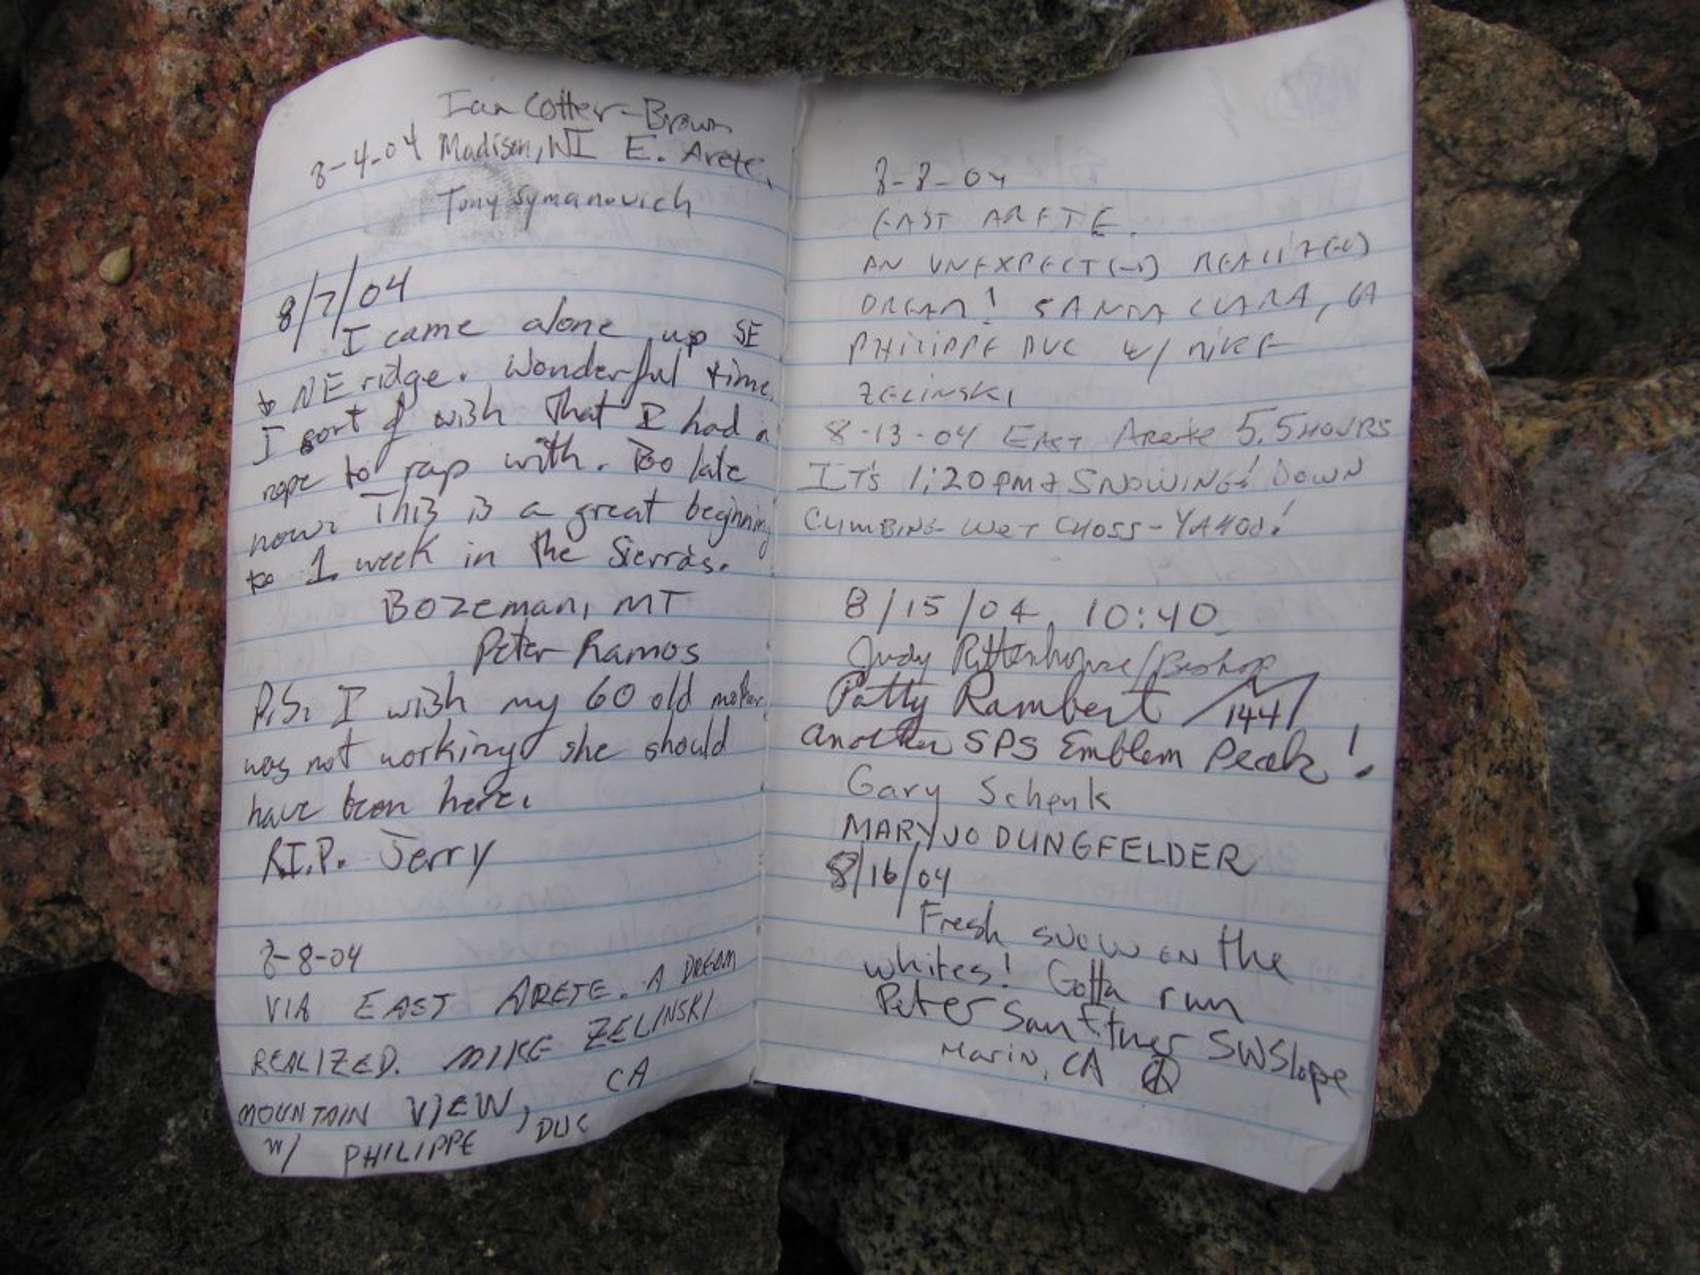 Ian Cotter-Brown
8-4-04 Madison, WI E. Arete.
Tony Symanovich
8/7/04
I came alone up SE
to NE ridge. Wonderful time.
I sort of wish that I had a
rope to rap with. Too late
now. This is a great beginning
to 1 week in the Sierras.
Bozeman, MT
Peter Ramos
P.S. I wish my 60 old mother
was not working she should
have been here.
R.I.P. Jerry
8-8-04
VIA EAST ARETE. A DREAM
REALIZED. MIKE ZELINSKI
MOUNTAIN VIEW, CA
W/ PHILIPPE DUC
8-8-04
EAST ARETE.
AN UNEXPECTED REALIZED
DREAM! SANTA CLARA, CA
PHILIPPE DUC W/ MIKE
ZELINSKI
8-13-04 EAST ARETE 5.5 HOURS
IT'S 1:20pm & SNOWING! DOWN
CLIMBING WET CHOSS - YAHOO!
8/15/04 10:40
Judy Rittenhouse/Bishop
Patty Rambert /144/
another SPS Emblem Peak!
Gary Schenk
MARY JO DUNGFELDER
8/16/04
Fresh snow on the
whites! Gotta run
Peter SW Slope
Marin, CA